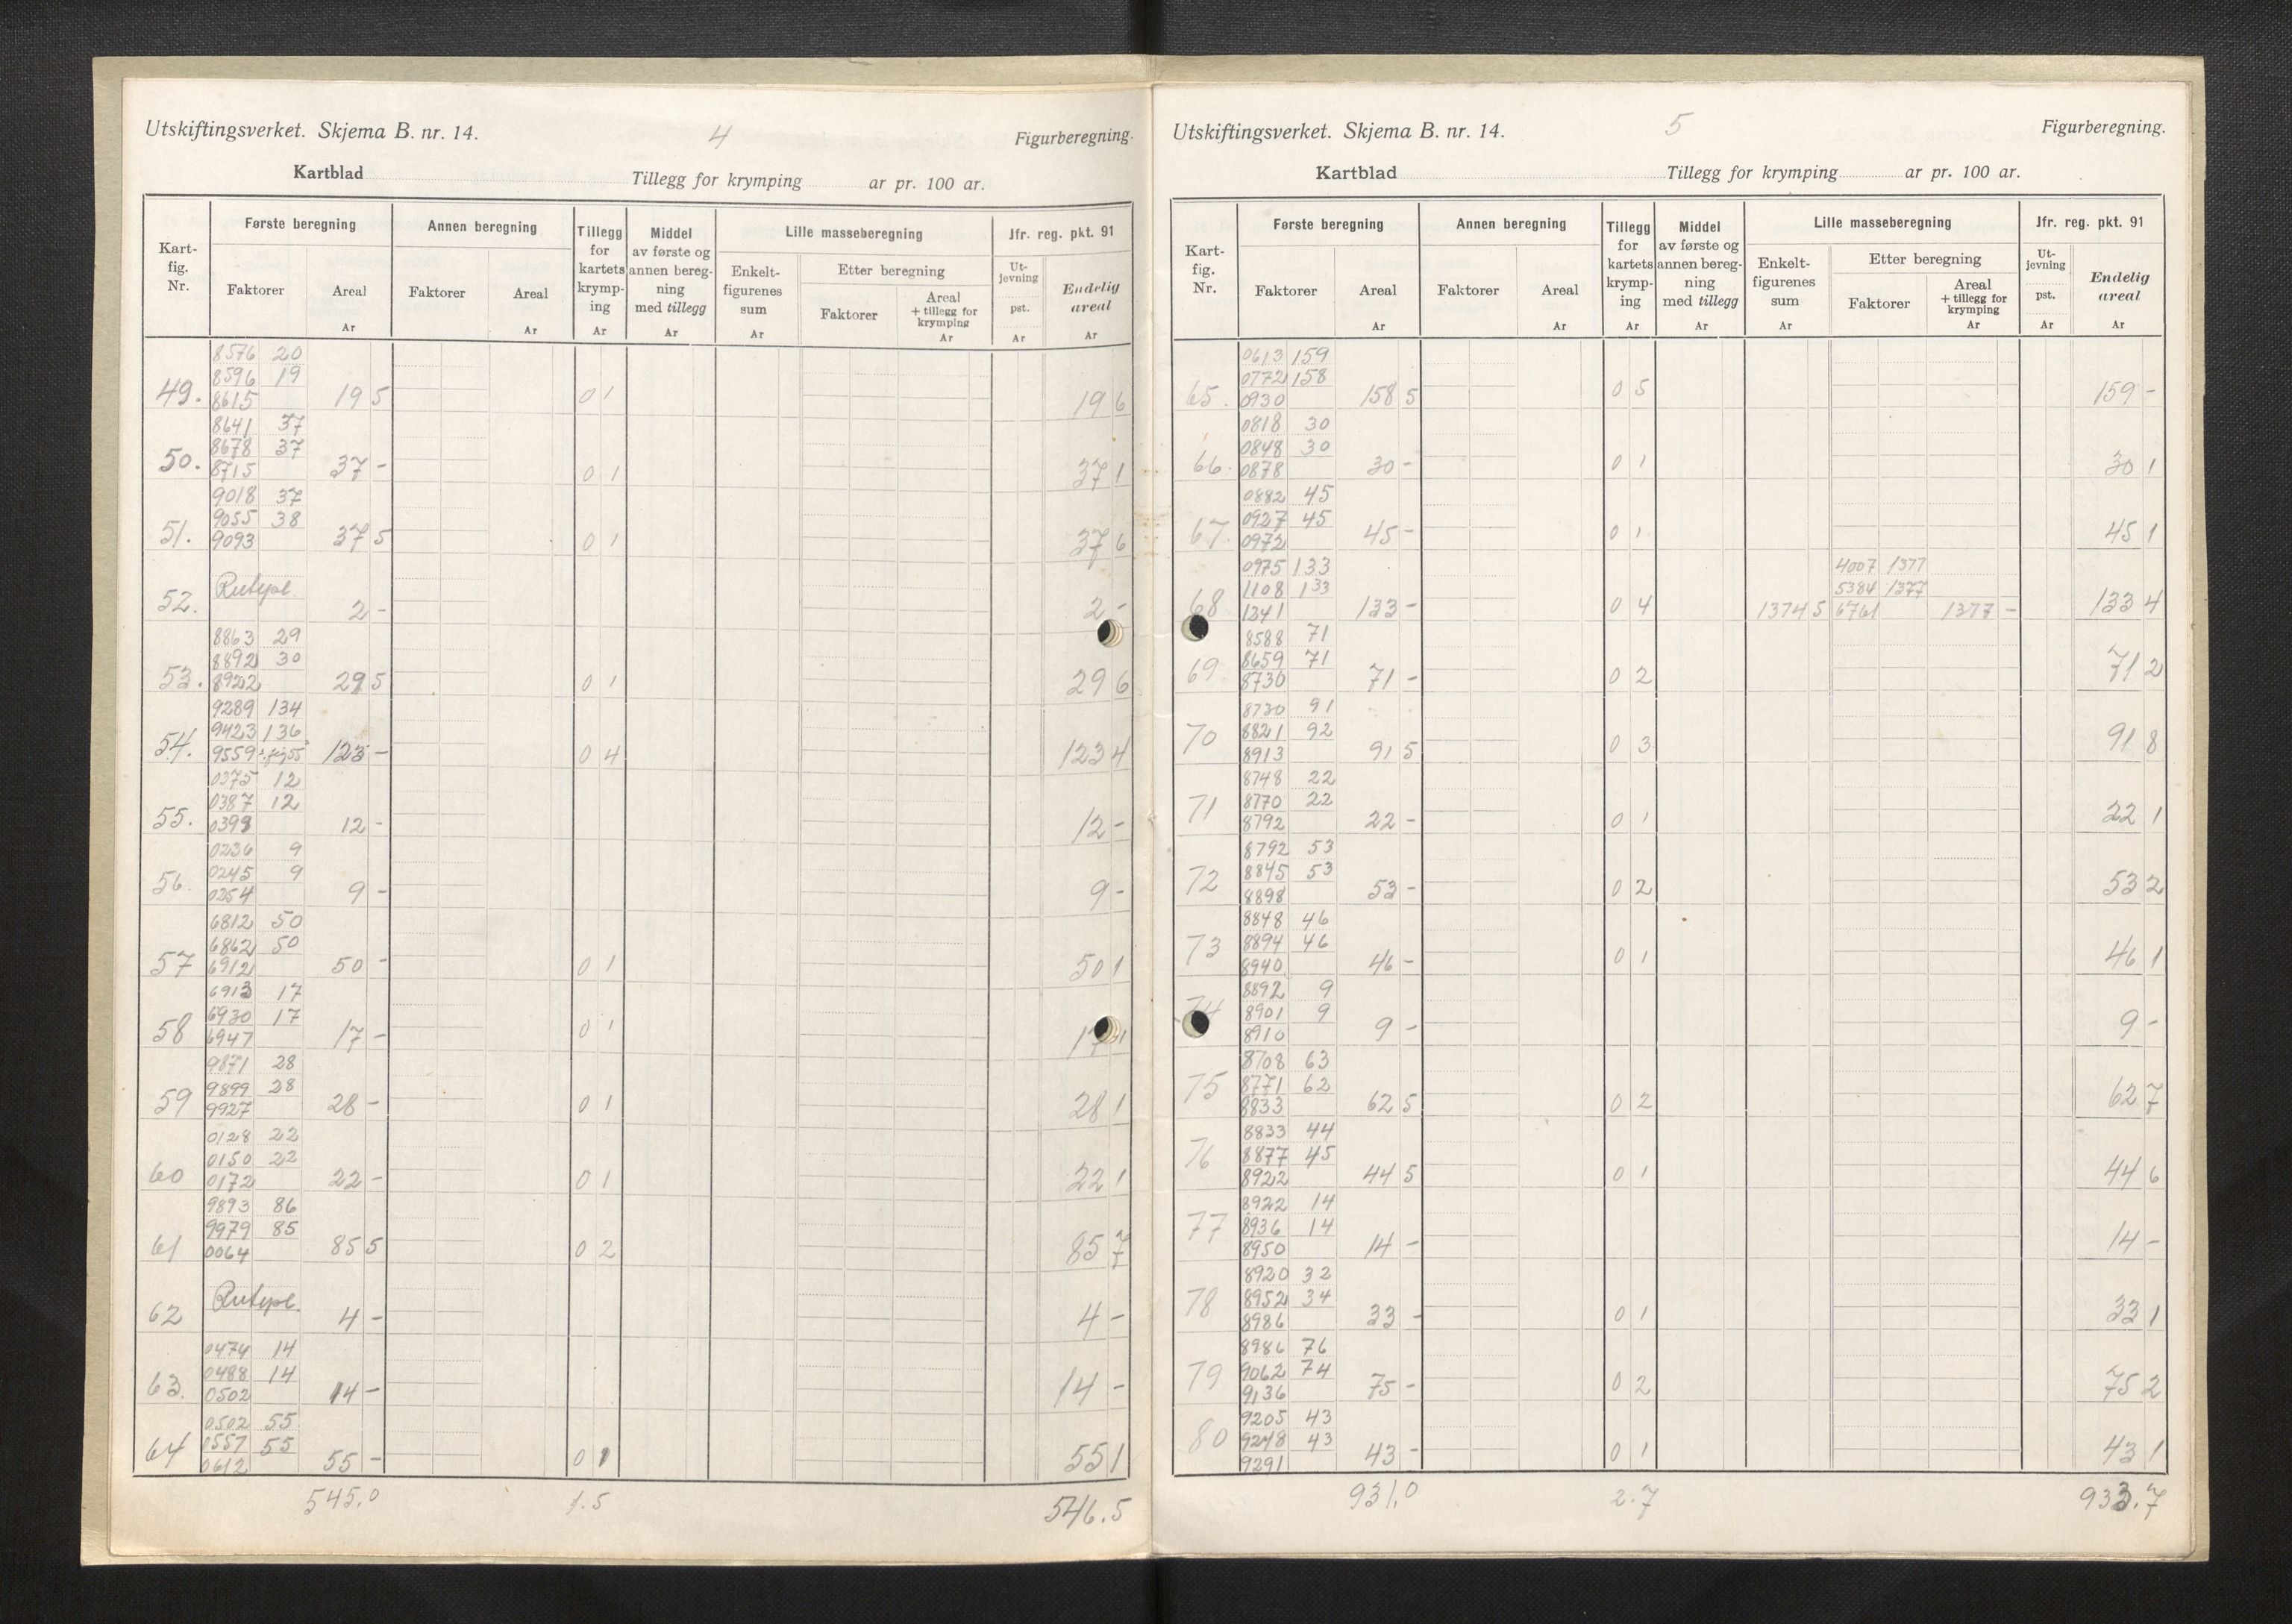 Utskiftingsverket. Skjema B. nr. 14. 4 Figurberegning.
Kartblad Tillegg for krymping ar pr. 100 ar.
Kart-fig. Nr. Første beregning Annen beregning Tillegg for kartets krymp-ing Middel av første og annen bereg-ning med tillegg Lille masseberegning Jfr. reg. pkt. 91
Faktorer Areal Faktorer Areal Enkelt-figurenes sum Etter beregning Ut-jevning pst. Endelig areal
Faktorer Areal + tillegg for krymping
Ar Ar Ar Ar Ar Ar Ar Ar
8576 20
8596 19
49. 8615 19 5 0 1 19 6
8641 37
8678 37
50. 8715 37 - 0 1 37 1
9018 37
9055 38
51. 9093 37 5 0 1 37 6
Rutepl.
52. 2 - 2 -
8863 29
8892 30
53. 8922 29 5 0 1 29 6
9289 134
9423 136
54. 9559 ÷ fig 55 123 - 0 4 123 4
0375 12
0387 12
55. 0399 12 - 12 -
0236 9
0245 9
56. 0254 9 - 9 -
6812 50
6862 50
57 6912 50 - 0 1 50 1
6913 17
6930 17
58 6947 17 - 0 1 17 1
9871 28
9899 28
59 9927 28 - 0 1 28 1
0128 22
0150 22
60 0172 22 - 0 1 22 1
9893 86
9979 85
61 0064 85 5 0 2 85 7
Rutepl.
62 4 - 4 -
0474 14
0488 14
63. 0502 14 - 14 -
0502 55
0557 55
64 0612 55 - 0 1 55 1
545.0 1.5 546.5
Utskiftingsverket. Skjema B. nr. 14. 5 Figurberegning.
Kartblad Tillegg for krymping ar pr. 100 ar.
Kart-fig. Nr. Første beregning Annen beregning Tillegg for kartets krymp-ing Middel av første og annen bereg-ning med tillegg Lille masseberegning Jfr. reg. pkt. 91
Faktorer Areal Faktorer Areal Enkelt-figurenes sum Etter beregning Ut-jevning pst. Endelig areal
Faktorer Areal + tillegg for krymping
Ar Ar Ar Ar Ar Ar Ar Ar
0613 159
0772 158
65. 0930 158 5 0 5 159 -
0818 30
0848 30
66. 0878 30 - 0 1 30 1
0882 45
0927 45
67. 0972 45 - 0 1 45 1
0975 133 4007 1377
1108 133 5384 1377
68 1241 133 - 0 4 1374 5 6761 1377 - 133 4
8588 71
8659 71
69 8730 71 - 0 2 71 2
8730 91
8821 92
70 8913 91 5 0 3 91 8
8748 22
8770 22
71 8792 22 - 0 1 22 1
8792 53
8845 53
72 8898 53 - 0 2 53 2
8848 46
8894 46
73 8940 46 - 0 1 46 1
8892 9
8901 9
74 8910 9 - 9 -
8708 63
8771 62
75 8833 62 5 0 2 62 7
8833 44
8877 45
76 8922 44 5 0 1 44 6
8922 14
8936 14
77 8950 14 - 14 -
8920 32
8952 34
78 8986 33 - 0 1 33 1
8986 76
9062 74
79 9136 75 - 0 2 75 2
9205 43
9248 43
80 9291 43 - 0 1 43 1
931.0 2.7 933.7